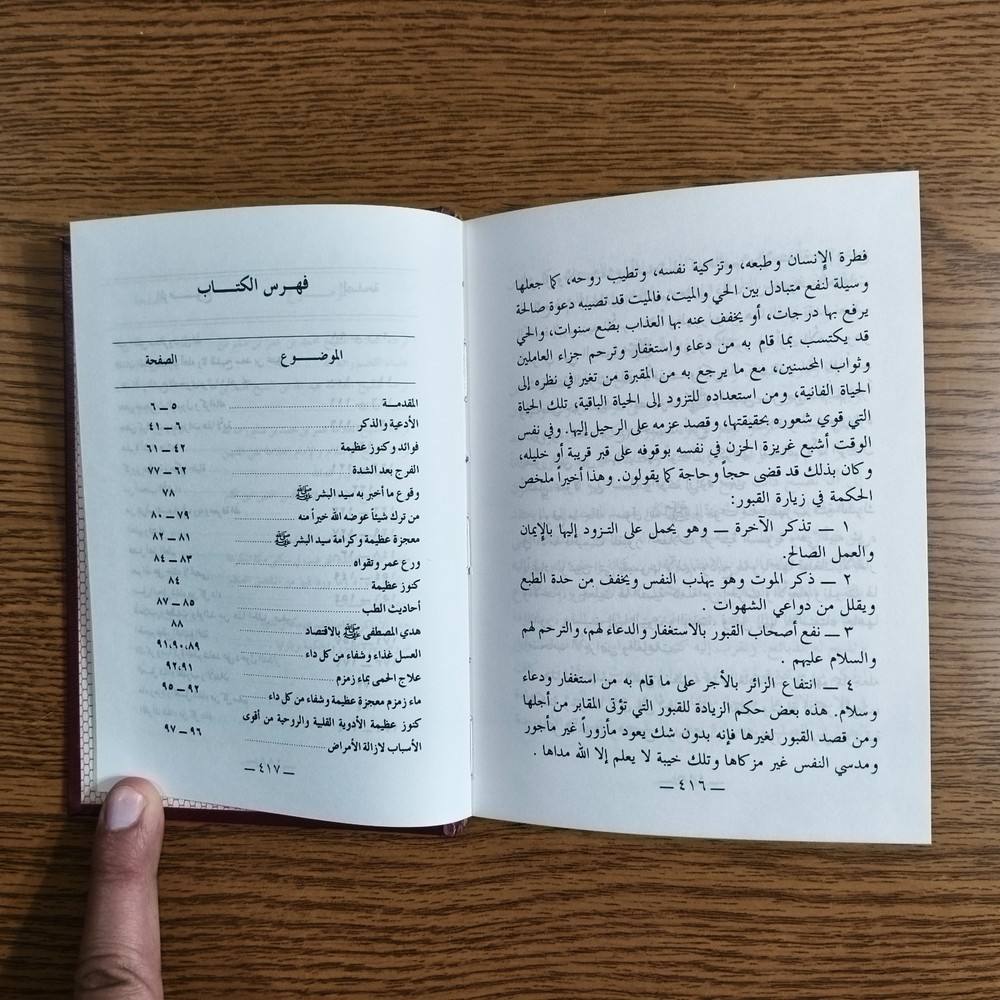 فطرة الإنسان وطبعه، وتزكية نفسه، وتطيب روحه، كما جعلها
وسيلة لنفع متبادل بين الحي والميت، فالميت قد تصيبه دعوة صالحة
يرفع بها درجات، أو يخفف عنه بها العذاب بضع سنوات، والحي
قد يكتسب بما قام به من دعاء واستغفار وترحم جزاء العاملين
وثواب المحسنين، مع ما يرجع به من المقبرة من تغير في نظره إلى
الحياة الفانية، ومن استعداده للتزود إلى الحياة الباقية، تلك الحياة
التي قوي شعوره بحقيقتها، وقصد عزمه على الرحيل إليها. وفي نفس
الوقت أشبع غريزة الحزن في نفسه بوقوفه على قبر قريبة أو خليله،
وكان بذلك قد قضى حجاً وحاجة كما يقولون. وهذا أخيراً ملخص
الحكمة في زيارة القبور:
١ ــ تذكر الآخرة ــ وهو يحمل على التزود إليها بالإيمان
والعمل الصالح.
٢ ــ ذكر الموت وهو يهذب النفس ويخفف من حدة الطبع
ويقلل من دواعي الشهوات .
٣ ــ نفع أصحاب القبور بالاستغفار والدعاء لهم، والترحم لهم
والسلام عليهم .
٤ ــ انتفاع الزائر بالأجر على ما قام به من استغفار ودعاء
وسلام. هذه بعض حكم الزيادة للقبور التي تؤتى المقابر من أجلها
ومن قصد القبور لغيرها فإنه بدون شك يعود مأزوراً غير مأجور
ومدسي النفس غير مزكاها وتلك خيبة لا يعلم إلا الله مداها .
ــ ٤١٦ ــ
فهرس الكتـــاب
الموضـــوع الصفحة
المقدمـــة ........ ٥ ــ ٦
الأدعية والذكر ........ ٦ ــ ٤١
فوائد وكنوز عظيمة ........ ٤٢ ــ ٦١
الفرج بعد الشدة ........ ٦٢ ــ ٧٧
وقوع ما أخبر به سيد البشر ﷺ ........ ٧٨
من ترك شيئاً عوضه الله خيراً منه ........ ٧٩ ــ ٨٠
معجزة عظيمة وكرامة سيد البشر ﷺ ........ ٨١ ــ ٨٢
ورع عمر وتقواه ........ ٨٣ ــ ٨٤
كنوز عظيمة ........ ٨٤
أحاديث الطب ........ ٨٥ ــ ٨٧
هدي المصطفى ﷺ بالاقتصاد ........ ٨٨
العسل غذاء وشفاء من كل داء ........ ٨٩،٩٠،٩١
علاج الحمى بماء زمزم ........ ٩١،٩٢
ماء زمزم معجزة عظيمة وشفاء من كل داء ........ ٩٢ ــ ٩٥
كنوز عظيمة الأدوية القلبية والروحية من أقوى
الأسباب لازالة الأمراض ........ ٩٦ ــ ٩٧
ــ ٤١٧ ــ